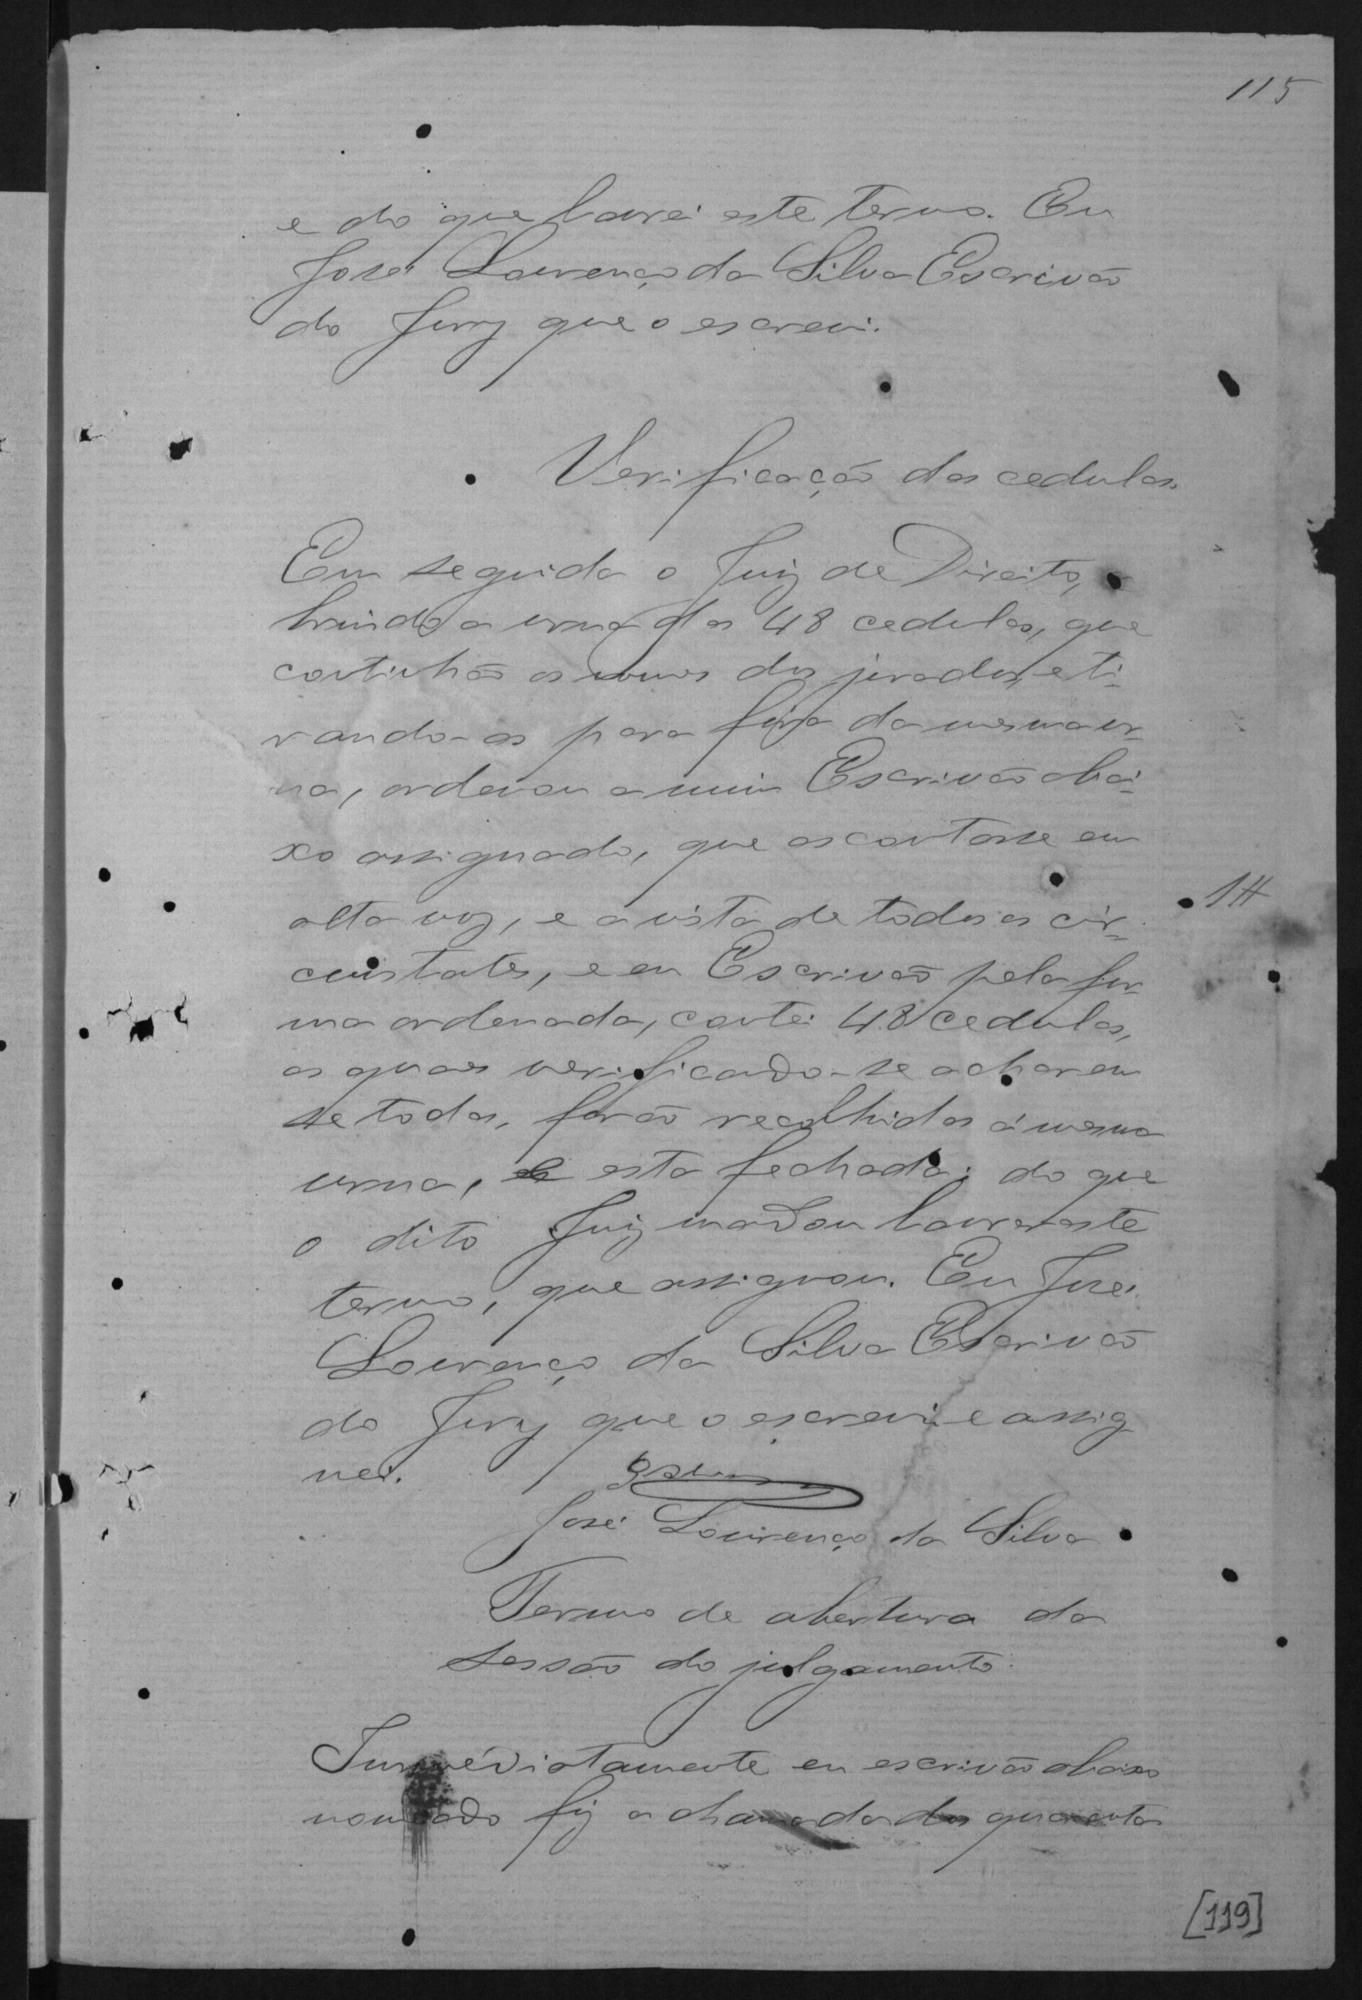 115
e do que lavrei este termo. Eu
José Lourenço da Silva Escrivão
do Jury que o escrevi.
Verificação das cedulas.
Em seguida o Juiz de Direito, a
brindo a urna das 48 cedulas, que
continhão os nomes dos jurados, e ti-
rando-as para fóra da mesma ur-
na, ordenou a mim Escrivão abai-
xo assignado, que as contasse em
alta voz, e a vista de todos os cir-
1#
cunstates, e eu Escrivão pela for-
ma ordenada, contei 48 cedulas,
as quaes verificando-se acharem
se todas, forão recolhidas á mesma
urna, e esta fechada; do que
o dito Juiz mandou lavrar este
termo, que assignou. Eu José
Lourenço da Silva Escrivão
do Jury que o escrevi e assig
nei.
José Lourenço da Silva
Termo de abertura da
sessão do julgamento.
Immediatamente eu escrivão abaixo
nomeado fiz a chamada dos quarenta
[119]